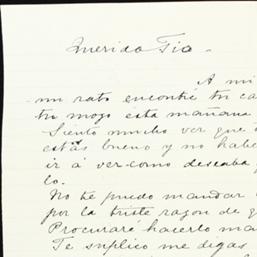 Querido Tio.
A mi
un rato encontré tu ca
tu mozo esta mañana
Siento mucho ver que
estás bueno y no habe
ir á ver como deseaba
lo.
No te puedo mandar
por la triste razon de q
Procuraré hacerlo ma
Te suplico me digas